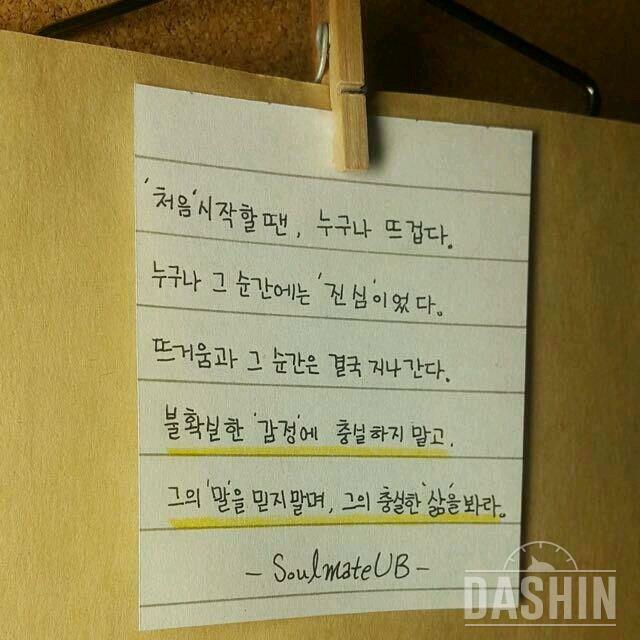 '처음'시작할땐, 누구나 뜨겁다.
누구나 그 순간에는 '진심'이었다.
뜨거움과 그 순간은 결국 지나간다.
불확실한 '감정'에 충실하지 말고,
그의 '말'을 믿지말며, 그의 충실한 '삶'을 봐라.
- SoulmateUB -
DASHIN